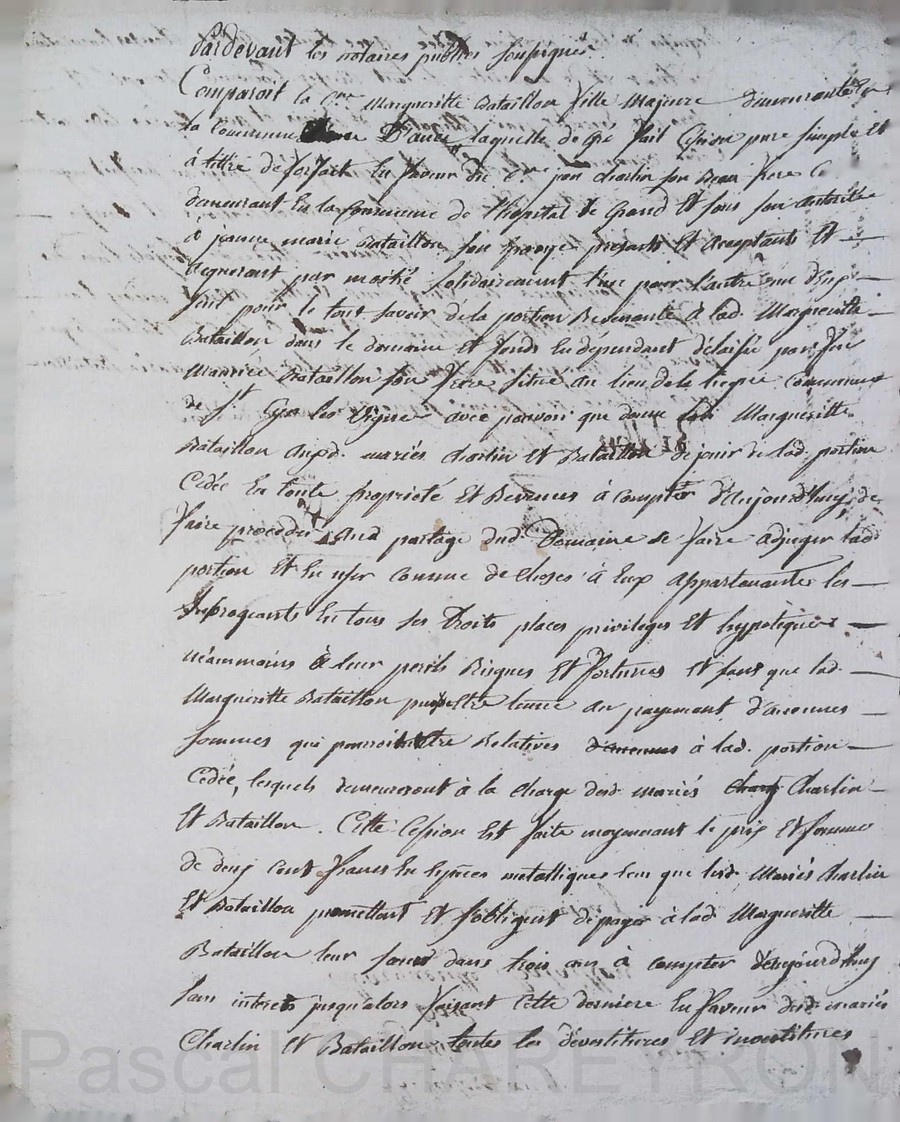 Pardevant les notaires publics soussignés
Comparoit la C.nne Margueritte Bataillon fille majeure demeurante en
la Commune laquelle de gré fait Cession pure simple et
à tittre de forfait En faveur du C.en jean charlin son Beau frere
demeurant En la Commune de l'hopital le Grand Et sous son authorité
à jeanne marie Bataillon son Epouse presents Et acceptants Et
acquerant par moitié solidairement l'un pour l'autre un d'Eux
seul pour le tout savoir de la portion Revenante à lad. Margueritte
Bataillon dans le domaine Et fonds En dependant délaissé par feu
Maurice Bataillon son frere situé au lieu de la Commune
de S.t Cyr les Vignes avec pouvoir que donne lad. Margueritte
Bataillon auxd. mariés charlin Et Bataillon de jouir de lad. portion
Cédée En toute propriété Et Revenus à compter d'aujourd'huy, de
faire proceder au partage dud. Domaine se faire adjuger lad.
portion Et En user comme de choses à Eux appartenantes les
subrogeants En tous ses droits places privileges Et hypoteques
néammoins à leur perils Risques Et fortunes Et sans que lad.
Margueritte Bataillon puisse Etre tenue au payement d'aucunes
sommes qui pourroit Etre Relatives d'aucunes à lad. portion
Cédée, lesquels demeureront à la charge desd. mariés Charlin
Et Bataillon. Cette Cession Est faite moyennant le prix Et somme
de deux cent francs En Espèces metalliques que lesd. Mariés Charlin
Et Bataillon promettent Et s'obligent de payer à lad. Margueritte
Bataillon leur soeur dans trois ans à compter d'aujourd'huy
sans interets jusqu'alors faisant Cette derniere En faveur desd. mariés
Charlin Et Bataillon toutes les dévestitures Et investitures
Pascal CHAREYRON